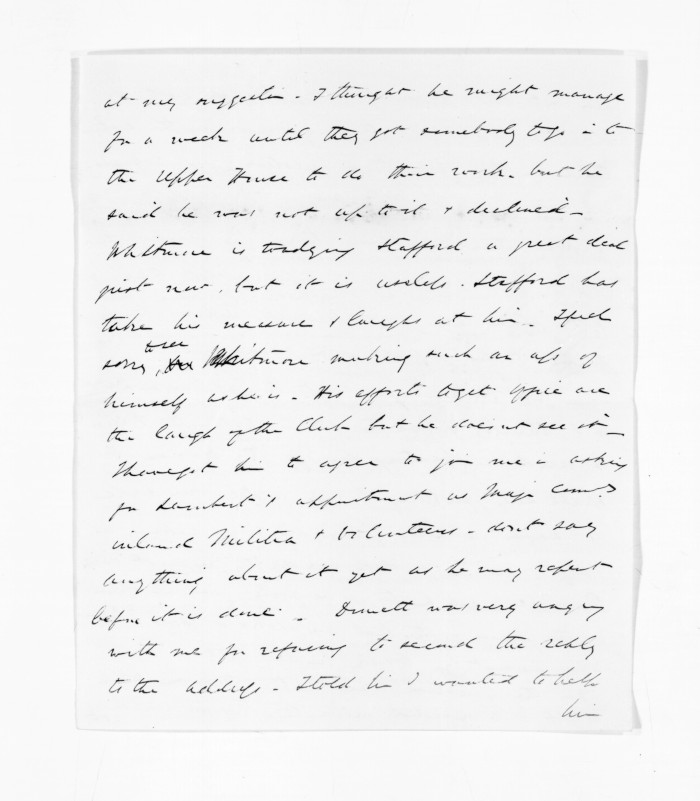 at my suggestion - I thought he might manage
for a week until they got somebody to go in to
the Upper House to do their work - but he
said he was not up to it & declined -
Whitmore is toadying Stafford a great deal
just now, but it is useless. Stafford has
take his measure & laughs at him - I feel
sorry, to see Whitmore making such an ass of
himself as he is - His efforts to get office are
the laugh of the Club but he does not see it -
I have got him to agree to join me in asking
for Lambert's appointment as Major Comd.
inland Militia & Volunteers - don't say
anything about it yet as he may repent
before it is done. - was very angry
with me for refusing to second the reply
to the address - I told him I wanted to help
him